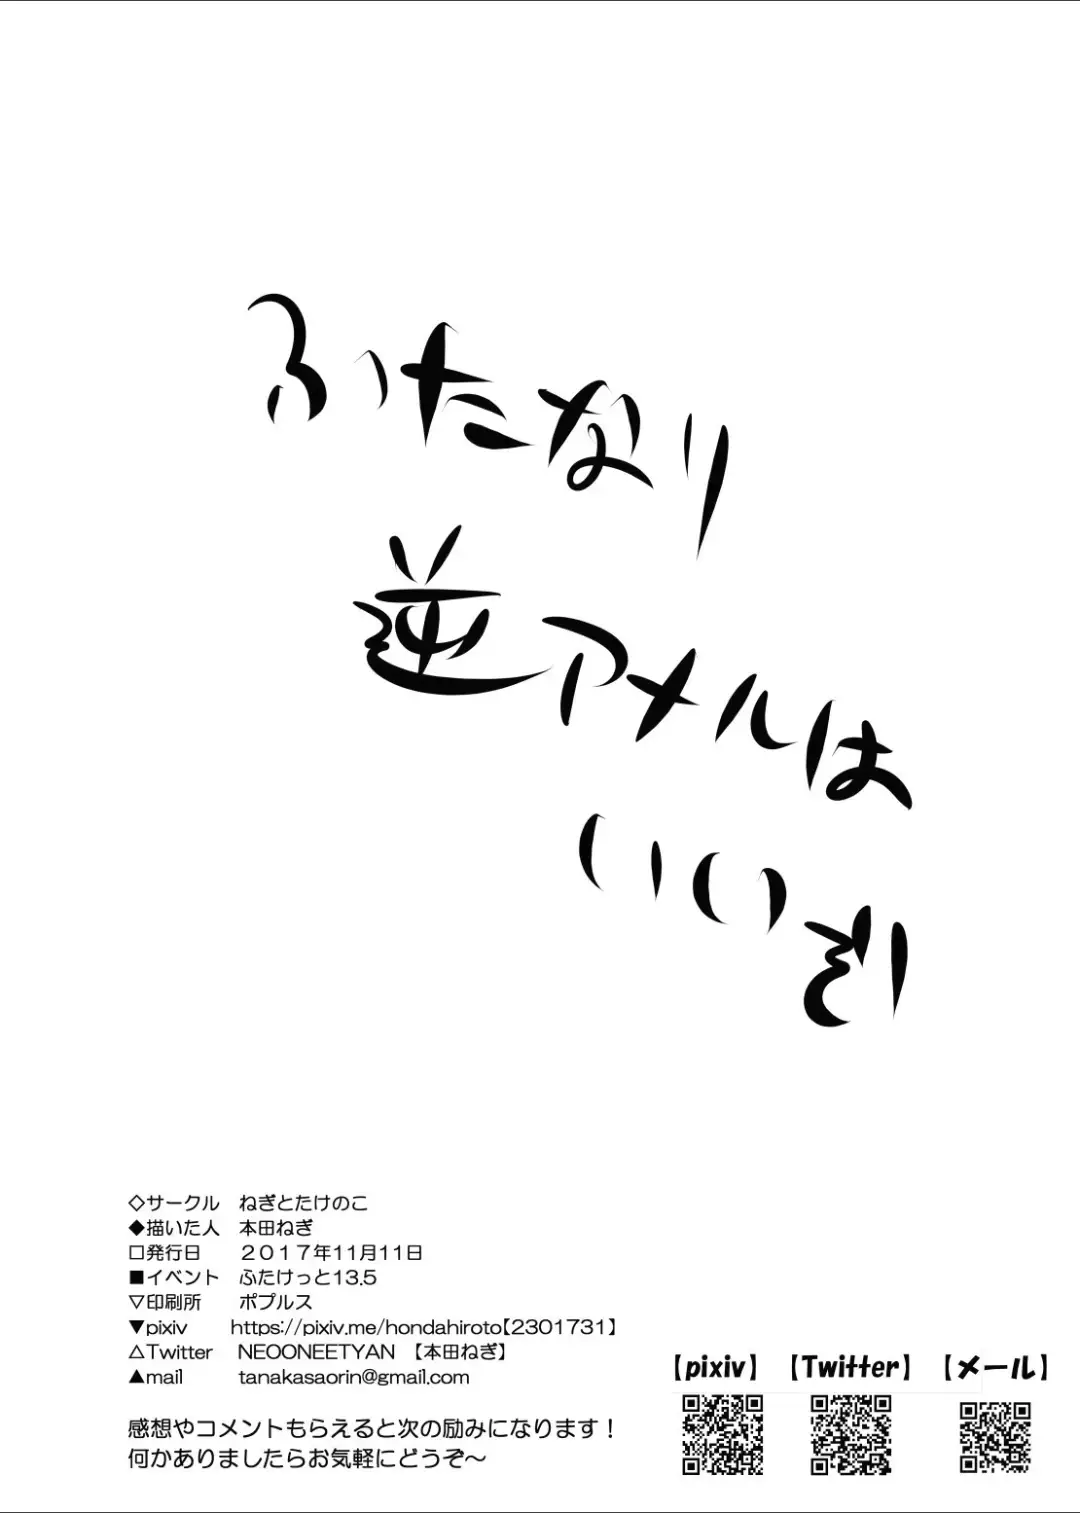 ふたなり
逆アメルは
いいぞ!
◇サークル ねぎとたけのこ
◆描いた人 本田ねぎ
□発行日 2017年11月11日
■イベント ふたけっと13.5
▽印刷所 ポプルス
▼pixiv https://pixiv.me/hondahiroto【2301731】
△Twitter NEOONEETYAN 【本田ねぎ】
▲mail tanakasaorin@gmail.com
感想やコメントもらえると次の励みになります!
何かありましたらお気軽にどうぞ～
【pixiv】 【Twitter】 【メール】